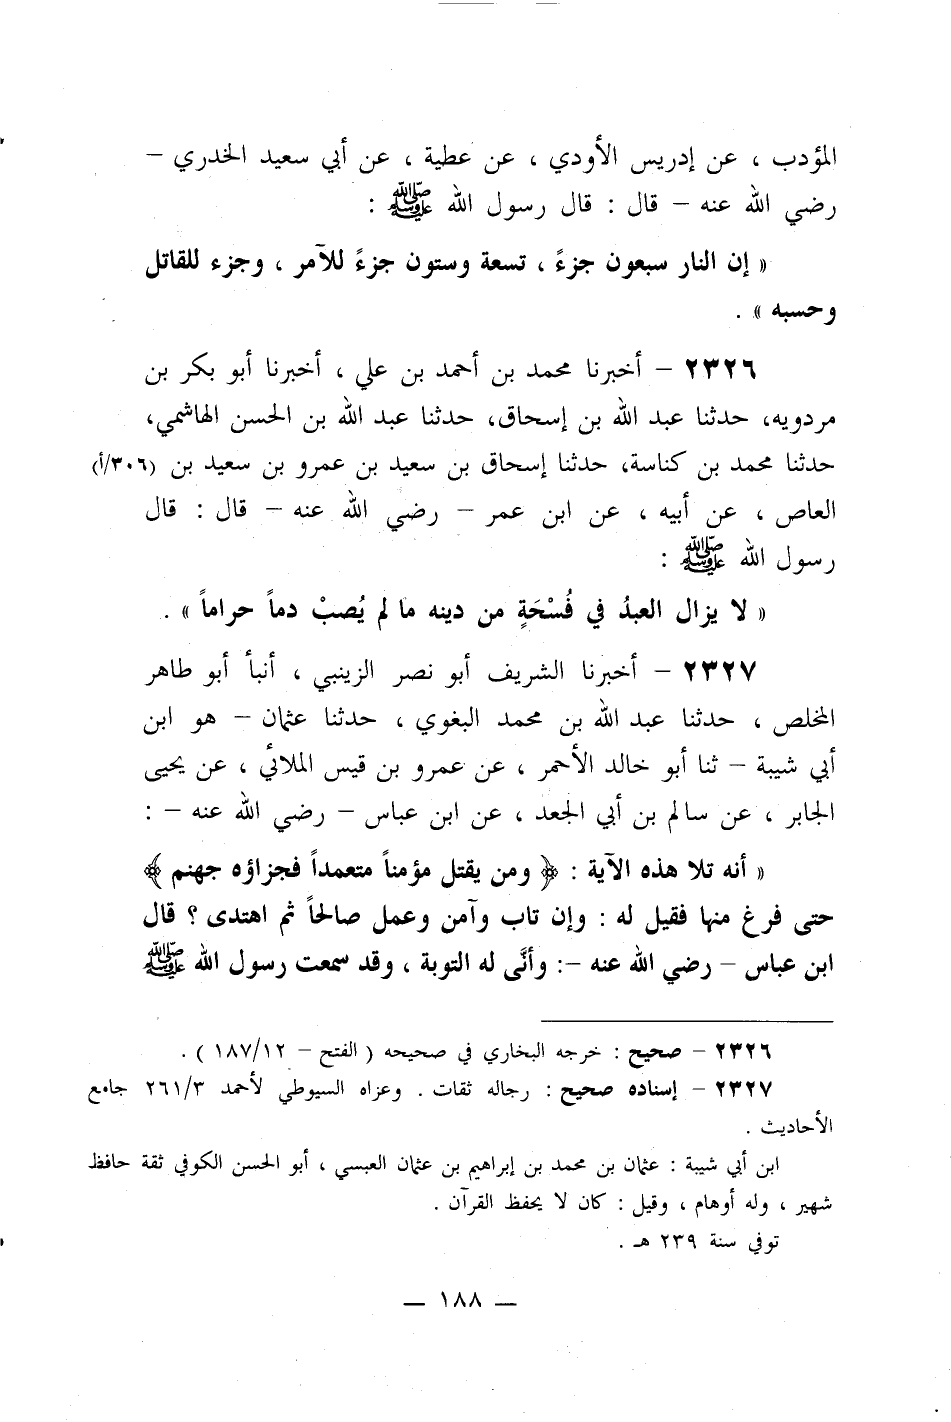 المؤدب ، عن إدريس الأودي ، عن عطية ، عن أبي سعيد الخدري –
رضي الله عنه – قال : قال رسول الله ﷺ :
« إن النار سبعون جزءً ، تسعة وستون جزءً للآمر ، وجزء للقاتل
وحسبه » .
٢٣٢٦ – أخبرنا محمد بن أحمد بن علي ، أخبرنا أبو بكر بن
مردويه، حدثنا عبد الله بن إسحاق، حدثنا عبد الله بن الحسن الهاشمي،
حدثنا محمد بن كناسة، حدثنا إسحاق بن سعيد بن عمرو بن سعيد بن (٣٠٦/أ)
العاص ، عن أبيه ، عن ابن عمر – رضي الله عنه – قال : قال
رسول الله ﷺ :
« لا يزال العبدُ في فُسْحَةٍ من دينه ما لم يُصبْ دماً حراماً » .
٢٣٢٧ – أخبرنا الشريف أبو نصر الزينبي ، أنبأ أبو طاهر
المخلص ، حدثنا عبد الله بن محمد البغوي ، حدثنا عثمان – هو ابن
أبي شيبة – ثنا أبو خالد الأحمر ، عن عمرو بن قيس الملائي ، عن يحيى
الجابر ، عن سالم بن أبي الجعد ، عن ابن عباس – رضي الله عنه – :
« أنه تلا هذه الآية : ﴿ ومن يقتل مؤمناً متعمداً فجزاؤه جهنم ﴾
حتى فرغ منها فقيل له : وإن تاب وآمن وعمل صالحاً ثم اهتدى ؟ قال
ابن عباس – رضي الله عنه –: وأنَّى له التوبة ، وقد سمعت رسول الله ﷺ
٢٣٢٦ – صحيح : خرجه البخاري في صحيحه ( الفتح – ١٨٧/١٢ ) .
٢٣٢٧ – إسناده صحيح : رجاله ثقات . وعزاه السيوطي لأحمد ٢٦١/٣ جامع
الأحاديث .
ابن أبي شيبة : عثمان بن محمد بن إبراهيم بن عثمان العبسي ، أبو الحسن الكوفي ثقة حافظ
شهير ، وله أوهام ، وقيل : كان لا يحفظ القرآن .
توفي سنة ٢٣٩ هـ .
– ١٨٨ –